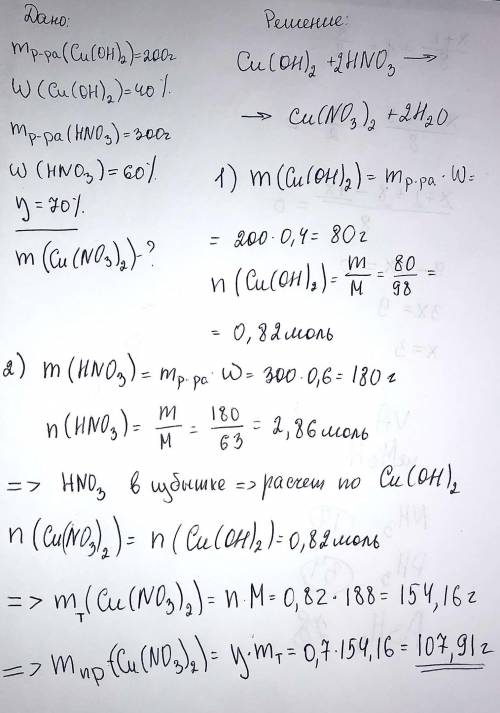 Дано:
mр-ра(Cu(OH)₂)=200г
W(Cu(OH)₂)=40%
mр-ра(HNO₃)=300г
W(HNO₃)=60%
η=70%
m(Cu(NO₃)₂)-?
Решение:
Cu(OH)₂+2HNO₃ →
→ Cu(NO₃)₂+2H₂O
1) m(Cu(OH)₂)=mр-ра·W=
= 200·0,4=80г
n(Cu(OH)₂)=m/M=80/98=
= 0,82моль
2) m(HNO₃)=mр-ра·W=300·0,6=180г
n(HNO₃)=m/M=180/63=2,86моль
=> HNO₃ в избытке => расчет по Cu(OH)₂
n(Cu(NO₃)₂)=n(Cu(OH)₂)=0,82моль
=> mт(Cu(NO₃)₂)=n·M=0,82·188=154,16г
=> mпр(Cu(NO₃)₂)=η·mт=0,7·154,16=107,91г